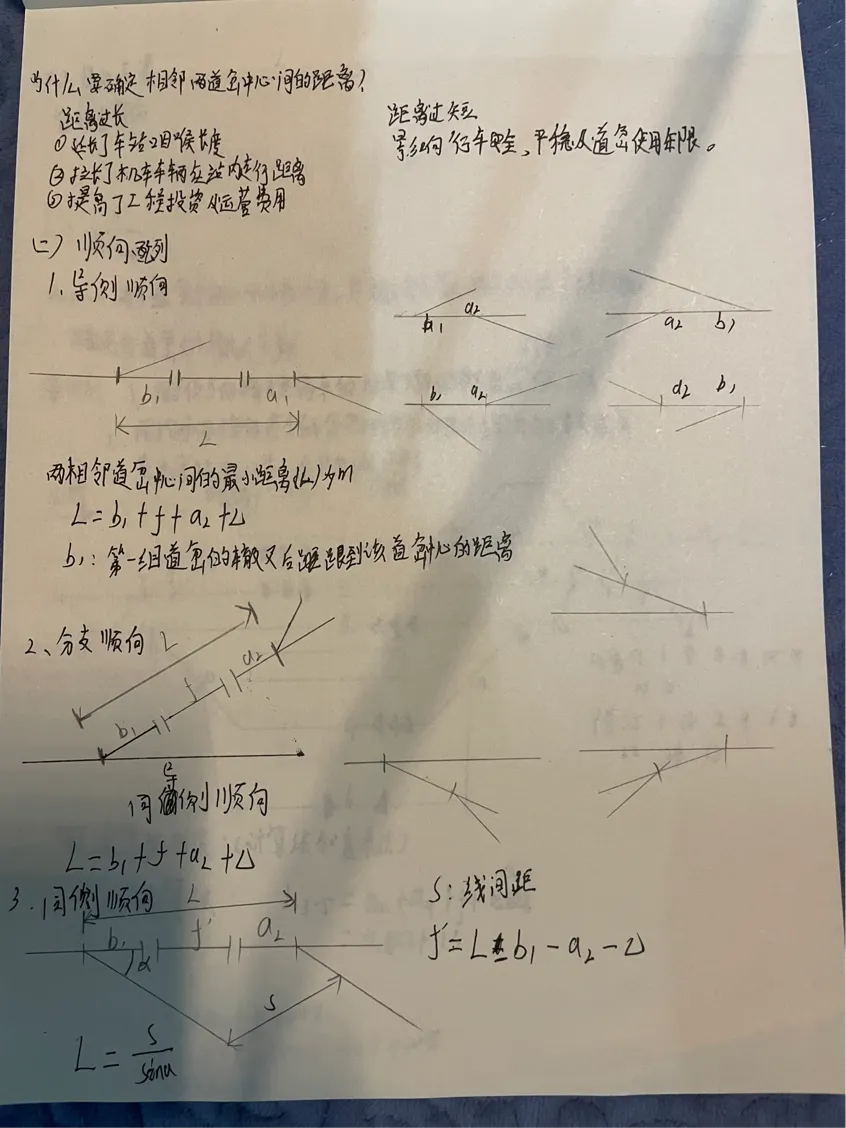 为什么要确定相邻两道岔中心间的距离?
距离过长
① 延长了车站咽喉长度
② 拉长了机车车辆在站内走行距离
③ 提高了工程投资及运营费用
距离过短
影响行车安全、平稳及道岔使用年限。
(二) 顺向、配列
1、异侧顺向
b₁ a₁
L
a₁ a₂
a₂ b₁
b₁ a₂
a₂ b₁
两相邻道岔中心间的最小距离(L)为m
L=b₁+f+a₂+Δ
b₁:第一组道岔的辙叉后跟到该道岔中心的距离
2、分支顺向
L
b₁ f a₂
异
同侧顺向
L=b₁+f+a₂+Δ
3.同侧顺向
L
b₁ f' a₂
α
S
S:线间距
f'=L-b₁-a₂-Δ
L=S/sinα